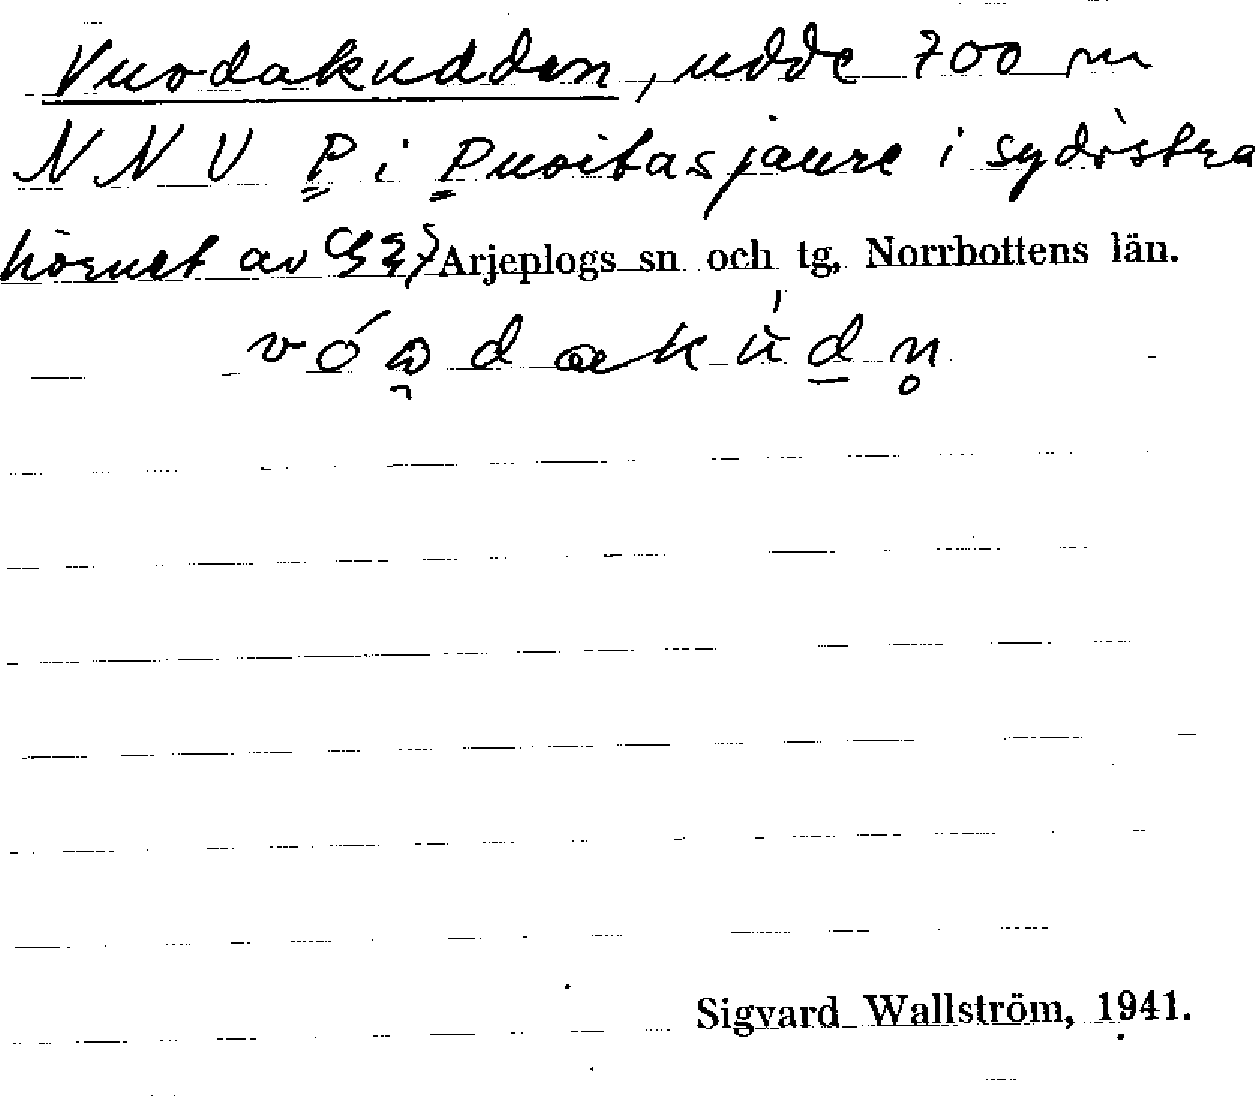 Vuodakudden, udde 700 m
NNV P i Puoitasjaure i sydöstra
hörnet av Arjeplogs sn och tg, Norrbottens län.
Sigvard Wallström, 1941.